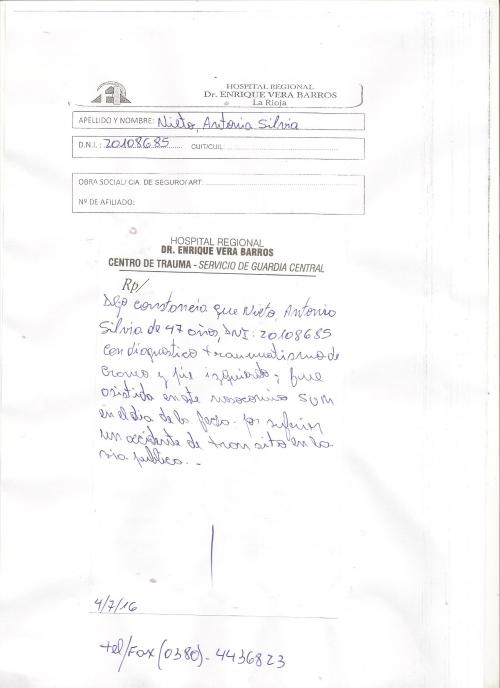 HOSPITAL REGIONAL
Dr. ENRIQUE VERA BARROS
La Rioja
APELLIDO Y NOMBRE: Nieto, Antonia Silvia
D.N.I.: 20108685 CUIT/CUIL:
OBRA SOCIAL/ CIA. DE SEGURO/ ART:
Nº DE AFILIADO:
HOSPITAL REGIONAL
DR. ENRIQUE VERA BARROS
CENTRO DE TRAUMA - SERVICIO DE GUARDIA CENTRAL
Rp/
Dejo constancia que Nieto, Antonia
Silvia de 47 años, DNI: 20108685
con diagnostico traumatismo de
craneo y pie izquierdo; fue
asistida en este nosocomio
en el dia de la fecha por sufrir
un accidente de transito en la
via publica..
4/7/16
tel/Fax (0380)-4436823